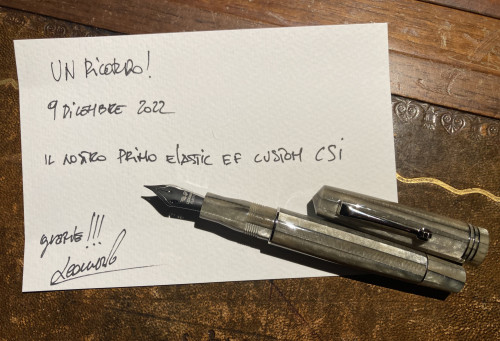 UN RICORDO!
9 DICEMBRE 2022
IL NOSTRO PRIMO ELASTIC EF CUSTOM CSI
GRAZIE!!!